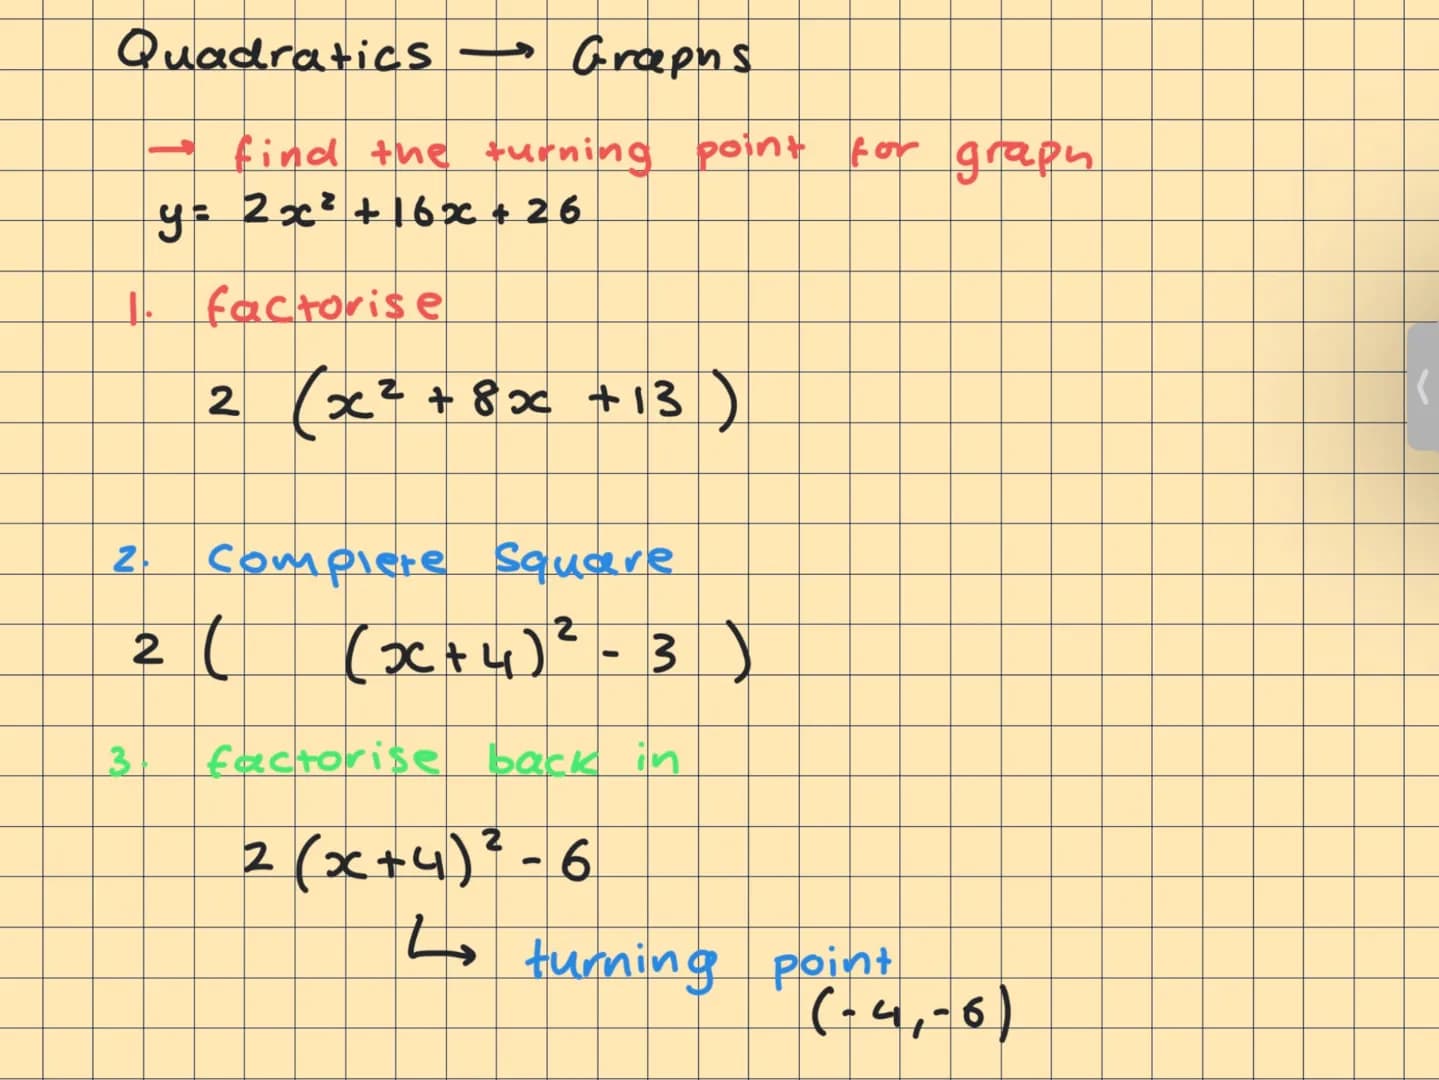 Quadratics → Graphs
→ find the turning point for graph
y = 2x² + 16x + 26
1. factorise
2 (x² + 8x + 13)
2. Complete Square
2 ( (x+4)² - 3 )
3. factorise back in
2(x+4)² - 6
↳ turning point
(-4,-6)